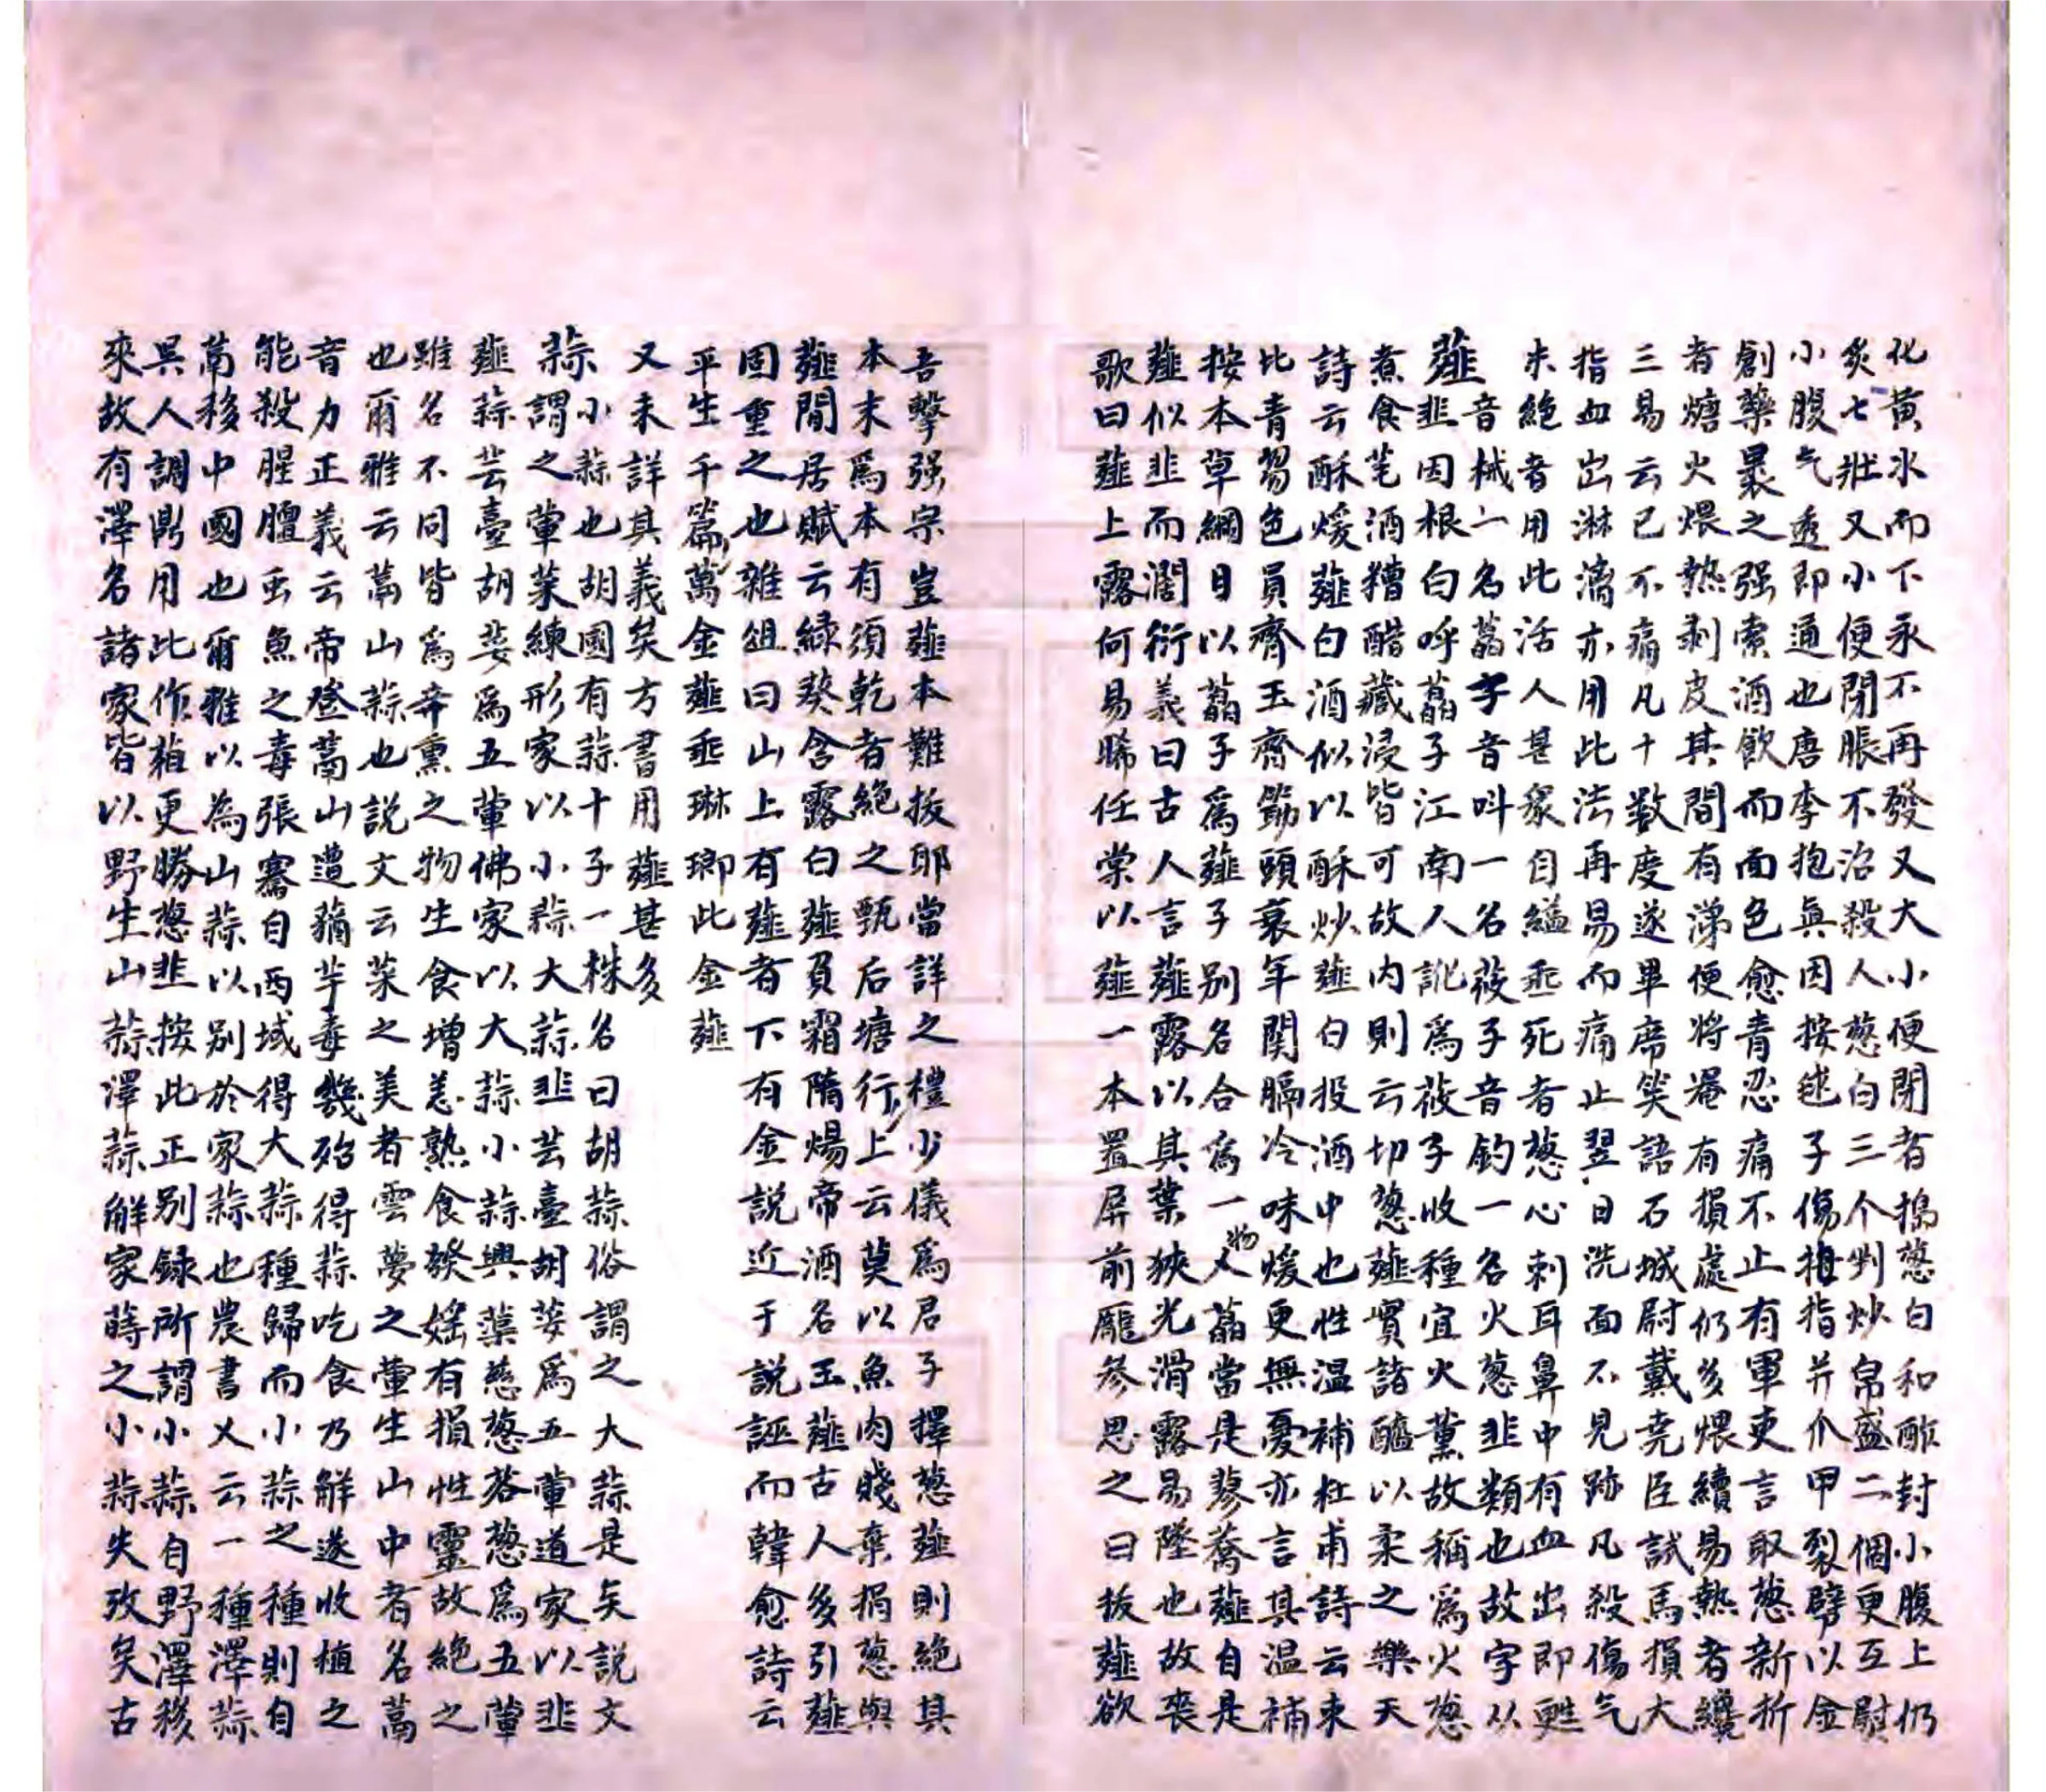 化黄水而下永不再發又大小便閉者搗葱白和酢封小腹上仍
炙七壯又小便閉脹不治殺人葱白三个剉炒帛盛二個更互熨
小腹气透即通也唐李抱真因按毬子傷拇指并爪甲裂劈以金
創藥裹之强索酒飲而面色愈青忍痛不止有軍吏言取葱新折
者煻火煨熱剥皮其間有涕便將罨有損處仍多煨續易熱者纔
三易云已不痛凡十數度遂畢席笑語石城尉戴尭臣試馬損大
指血出淋漓亦用此法再易而痛止翌日洗面不見跡凡殺傷气
未絶者用此活人甚衆自縊垂死者葱心刺耳鼻中有血出即甦
薤音械一名䔽字音呌一名莜子音釣一名火葱韭類也故字从
韭因根白呼藠子江南人訛爲莜子收種宜火薰故稱爲火葱
煮食芼酒糟醋藏浸皆可故内則云切葱薤實諸醯以柔之樂天
詩云酥煖薤白酒似以酥炒薤白投酒中也性温補杜甫詩云束
比青芻色員齊玉齊筯頭衰年関膈冷味煖更無憂亦言其温補
按本草綱目以藠子爲薤子别名合爲一物人藠當是蓼蕎薤自是
薤似韭而濶衍義曰古人言薤露以其葉狹光滑露易墜也故喪
歌曰薤上露何易晞任棠以薤一本置屏前龐參思之曰拔薤欲
吾擊强宗豈薤本難拔耶當詳之禮少儀爲君子擇葱薤則絶其
本末爲本有須乾者絶之甄后塘行上云莫以魚肉賤棄捐葱與
薤閒居賦云緑葵含露白薤負霜隋煬帝酒名玉薤古人多引薤
固重之也雜俎曰山上有薤者下有金説近于説誣而韓愈詩云
平生千篇萬金薤垂琳瑯此金薤
又未詳其義矣方書用薤甚多
蒜小蒜也胡國有蒜十子一株名曰胡蒜俗謂之大蒜是矣説文
蒜謂之葷菜練形家以小蒜大蒜韭芸臺胡荽爲五葷道家以韭
薤蒜芸臺胡荽爲五葷佛家以大蒜小蒜興蕖慈葱茖葱爲五葷
雖名不同皆爲辛熏之物生食增恚熟食發婬有損性靈故絶之
也爾雅云蒚山蒜也説文云菜之美者雲夢之葷生山中者名蒚
音力正義云帝登蒚山遭蕕芋毒幾殆得蒜吃食乃解遂收植之
能殺腥膻虫魚之毒張騫自西域得大蒜種歸而小蒜之種則自
蒚移中國也爾雅以為山蒜以别於家蒜也農書又云一種澤蒜
吴人調鼎用此作葅更勝葱韭按此正别録所謂小蒜自野澤移
來故有澤名諸家皆以野生山蒜澤蒜解家蒔之小蒜失攷矣古